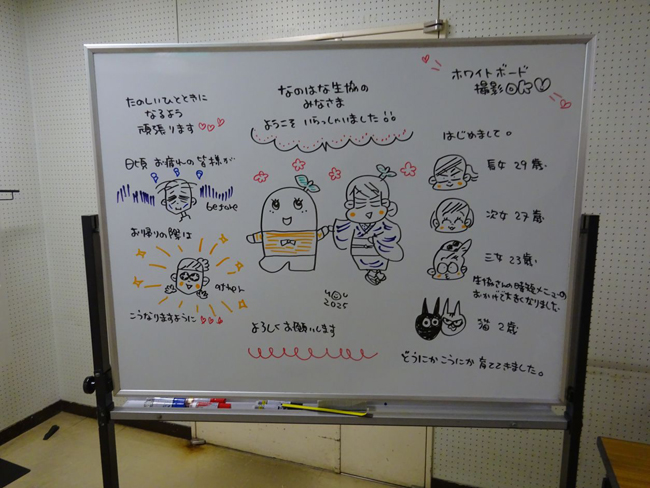 たのしいひとときに
なるよう
頑張ります
日頃 お疲れの皆様が
before
お帰りの際は
after
こうなりますように
なのはな生協の
みなさま
ようこそ いらっしゃいました!!
2025
よろしくお願いします
ホワイトボード
撮影OK
はじめまして。
長女 29歳
次女 27歳
三女 23歳
生協さんの時短メニューの
おかげで大きくなりました
猫 2歳
どうにかこうにか 育ててきました。